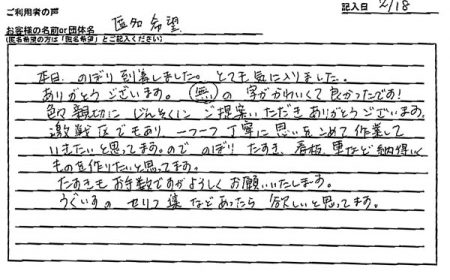 ご利用者の声
記入日 2/18
お客様の名前or団体名 匿名希望
(匿名希望の方は「匿名希望」とご記入ください)
本日、のぼり到着しました。とても気に入りました。
ありがとうございます。(無)の字がかわいくて良かったです!
色々親切にじんそくにご提案いただきありがとうございます。
激戦区でもあり、一つ一つ丁寧に思いをこめて作業して
いきたいと思ってます。ので のぼり たすき、看板、車など納得いく
ものを作りたいと思ってます。
たすきもお手数ですがよろしくお願いいたします。
うぐいすのセリフ集などあったら欲しいと思ってます。